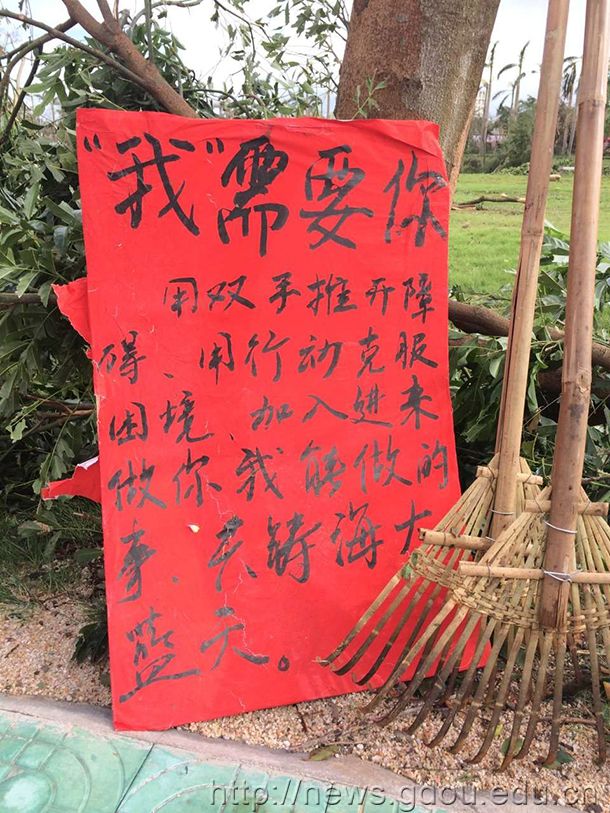 “我”需要你
用双手推开障
碍、用行动克服
困境、加入进来
做你我能做的
事、共铸海大
蓝天。
http://news.gdou.edu.cn